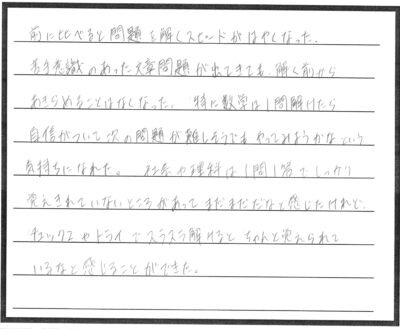 前に比べると問題を解くスピードがはやくなった。
苦手意識のあった文章問題が出てきても、解く前から
あきらめることはなくなった。 特に数学は1問解けたら
自信がついて次の問題が難しそうでもやってみようかなという
気持ちになれた。 社会や理科は1問1答でしっかり
覚えきれていないところがあってまだまだだなと感じたけれど、
チェックエやトライでスラスラ解けると ちゃんと覚えられて
いるなと感じることができた。